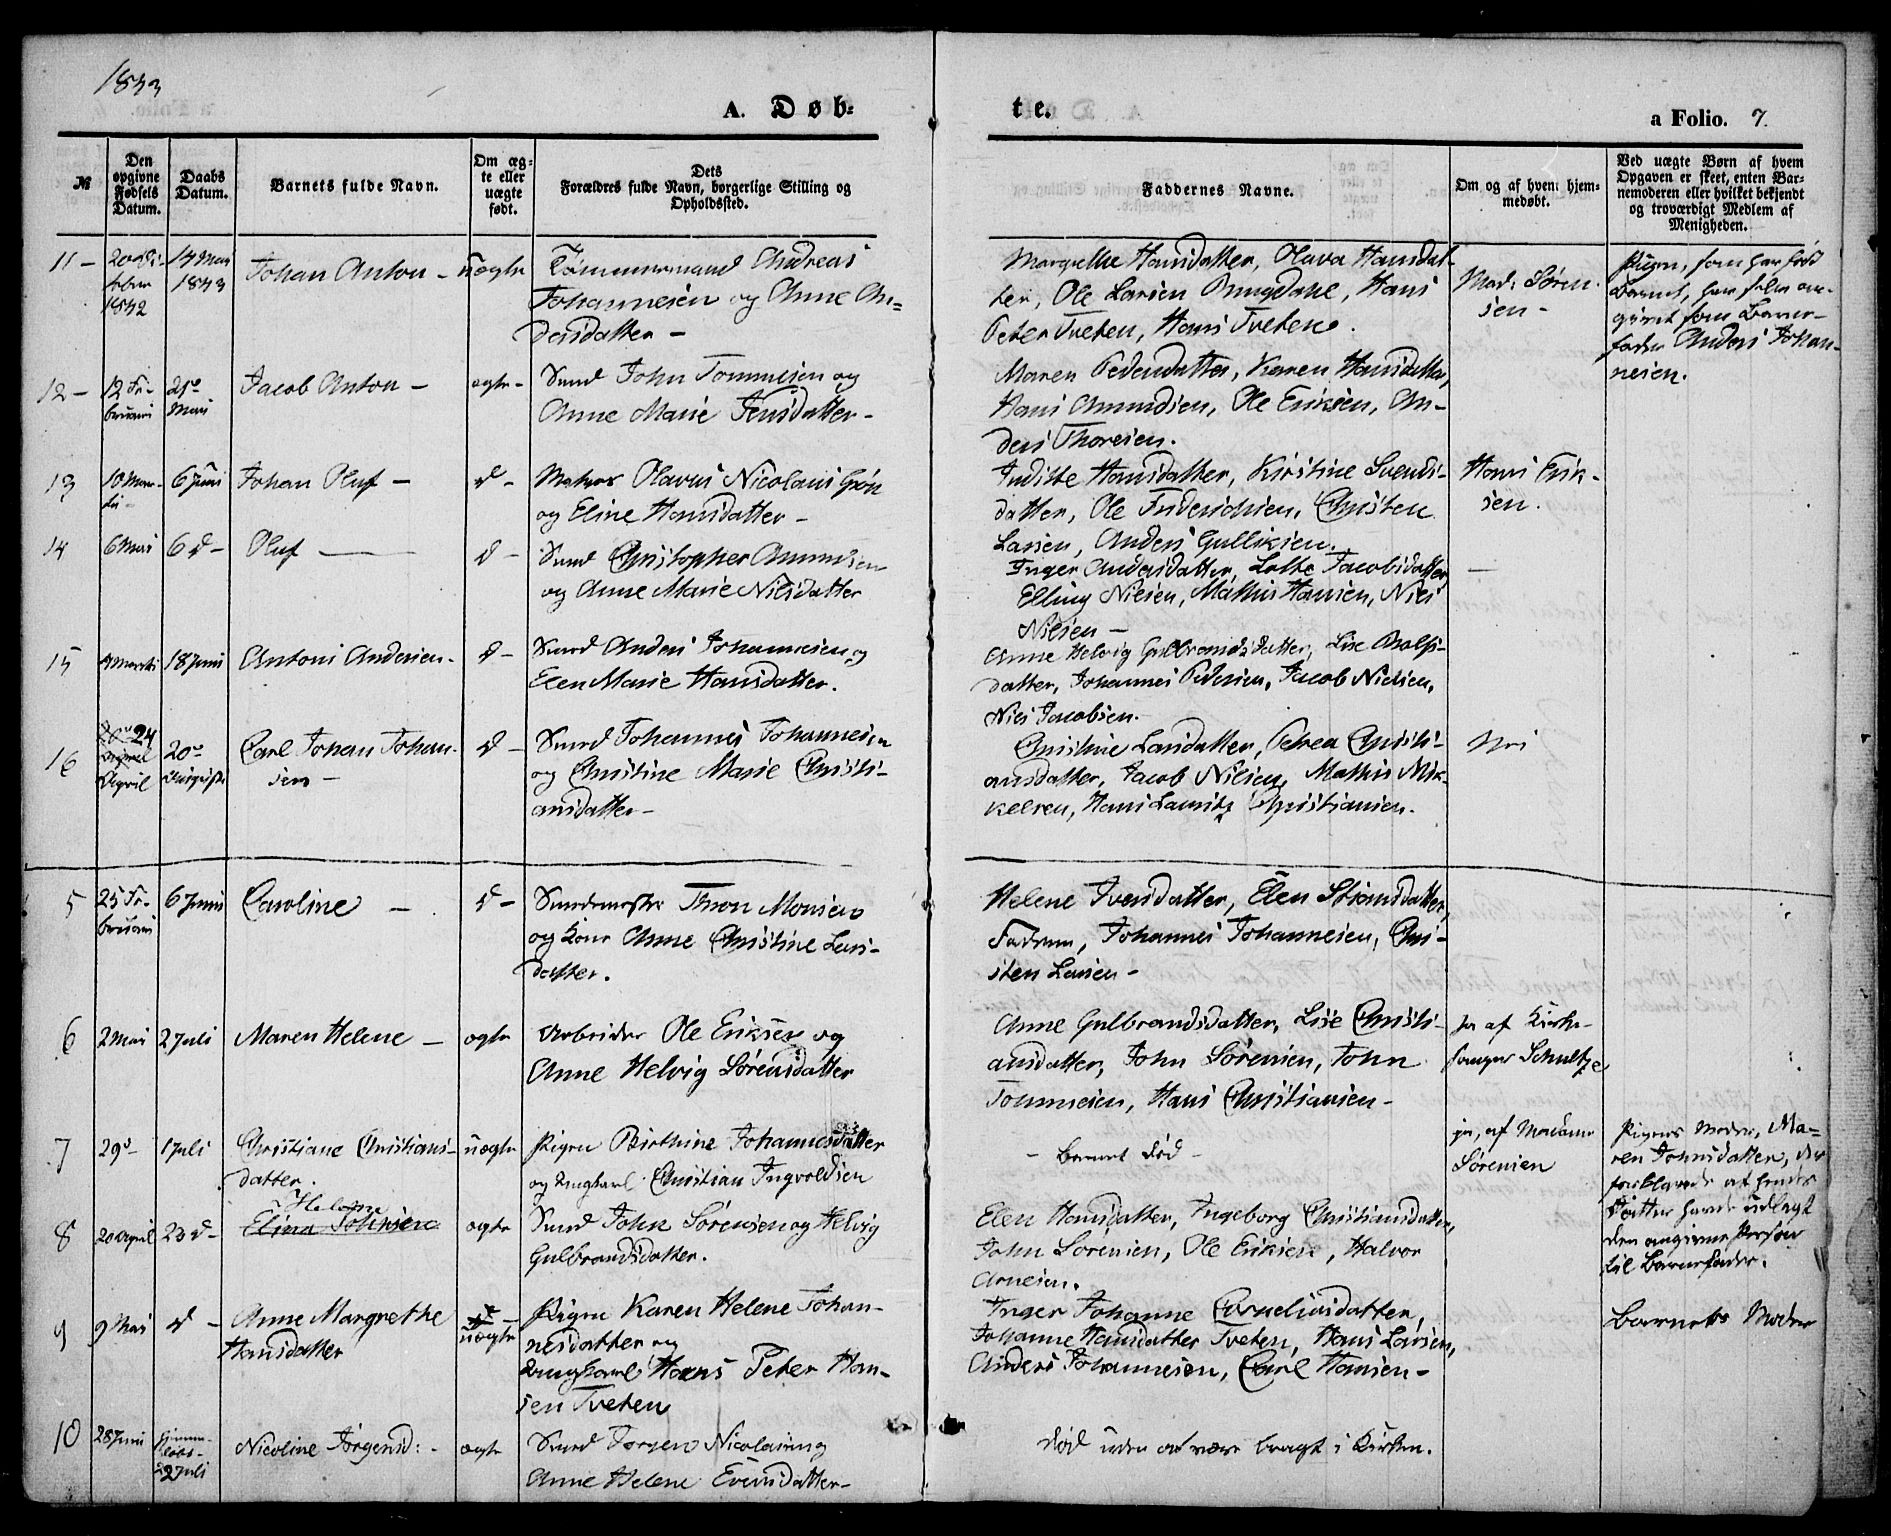 1843
A. Døb-
te.
a Folio. 7.
№
Den opgivne Fødsels Datum.
Daabs Datum.
Barnets fulde Navn.
Om æg-te eller uægte født.
Dets Forældres fulde Navn, borgerlige Stilling og Opholdssted.
Faddernes Navne.
Om og af hvem hjem-medøbt.
Ved uægte Børn af hvem Opgaven er skeet, enten Bar-nemoderen eller hvilket bekjendt og troværdigt Medlem af Menigheden.
11 -
1842
14 Mai
1843
Johan Anton -
uægte
Tømmermand Andreas
Johannesen og Anne An-
dersdatter -
Margrethe Hansdatter, Olava Hansdat-
ter, Ole Larsen Bingdahl, Hans
Peter Tveten, Hans Tveten.
Mad: Søren-
sen -
Pigen, som har født
Barnet, har selv an-
givet som Barne-
fader Anders Johan-
nesen.
12 -
12 Fe-
bruari
21de
Mai
Jacob Anton -
ægte -
Smed John Tommesen og
Anne Marie Jensdatter -
Maren Pedersdatter, Karen Hansdatter,
Hans Amundsen, Ole Eriksen, An-
ders Thoresen.
13
10 Mar-
tii -
6 Juni
Johan Oluf -
d -
Matros Olavus Nicolaus Grøn
og Eline Hansdatter -
Inditte Hansdatter, Kirstine Svends-
datter, Ole Fredrichsen, Christen
Larsen, Anders Gulliksen.
Hans Erik-
sen.
14
6 Mai
6 d -
Oluf -
d -
Smed Christopher Amundsen
og Anne Marie Nilsdatter
Inger Andersdatter, Lotte Jacobsdatter,
Elling Nilsen, Mathis Hansen, Niels
Nilsen -
-
15
Martii
18 Juni
Antoni Andersen -
d -
Smed Anders Johannesen og
Elen Marie Hansdatter.
Anne Helvig Gulbrandsdatter, Lise Rolfs-
datter, Johannes Pedersen, Jacob Nielsen,
Niels Jacobsen.
16
24
April
20de
Augusti
Carl Johan Johan-
sen -
d -
Smed Johannes Johannesen
og Christine Marie Christi-
ansdatter -
Christine Larsdatter, Petrea Christi-
ansdatter, Jacob Nilsen, Mathis Mik-
kelsen, Hans Lauritz Christiansen.
Nei
5
25 Fe-
bruari
6 Juni
Caroline -
d -
Smedemester Thron Monsen
og Kone Anne Christine Lars-
datter.
Helene Iversdatter, Elen Stiansdatter,
Faderen, Johannes Johannesen, Chri-
sten Larsen -
6
2 Mai
2 Juli
Maren Helene -
ægte
Arbeider Ole Eriksen og
Anne Helvig Sørensdatter
Anne Gulbrandsdatter, Lise Christi-
ansdatter, John Sørensen, John
Tommesen, Hans Christiansen -
ja af Kirke-
sanger Schultze
7
29 d
1 Juli
Christiane Christians-
datter.
uægte
Pigen Birthine Johannesdatter
og Ungkarl Christian Ingvoldsen
- Barnet død -
ja, af Madame
Sørensen
Pigens Moder, Ma-
ren Johnsdatter, der
forklarede at hendes
Datter havde udlagt
den angivne Person
til Barnefader.
8
20 April
23 d -
Helene
Elina Johnsen
ægte
Smed John Sørensen og Helvig
Gulbrandsdatter.
Elen Hansdatter, Ingeborg Christiansdatter,
John Sørensen, Ole Eriksen, Halvor
Arnesen.
9
9 Mai
d -
Anne Margrethe
Hansdatter
uægte
Pigen Karen Helene Johan-
nesdatter og
Ungkarl Hans Peter Han-
sen Tveten
Inger Johanne Corneliusdatter,
Johanne Hansdatter Tveten, Hans Larsen,
Anders Johannesen, Carl Hansen -
Barnets Moder
10
28 Juni
Hjemme-
døbt -
2 Juli
Nicoline Jørgensd: -
ægte
Smed Jørgen Nicolaisen og
Anne Helene Evensdatter -
død uden at være bragt i Kirken.